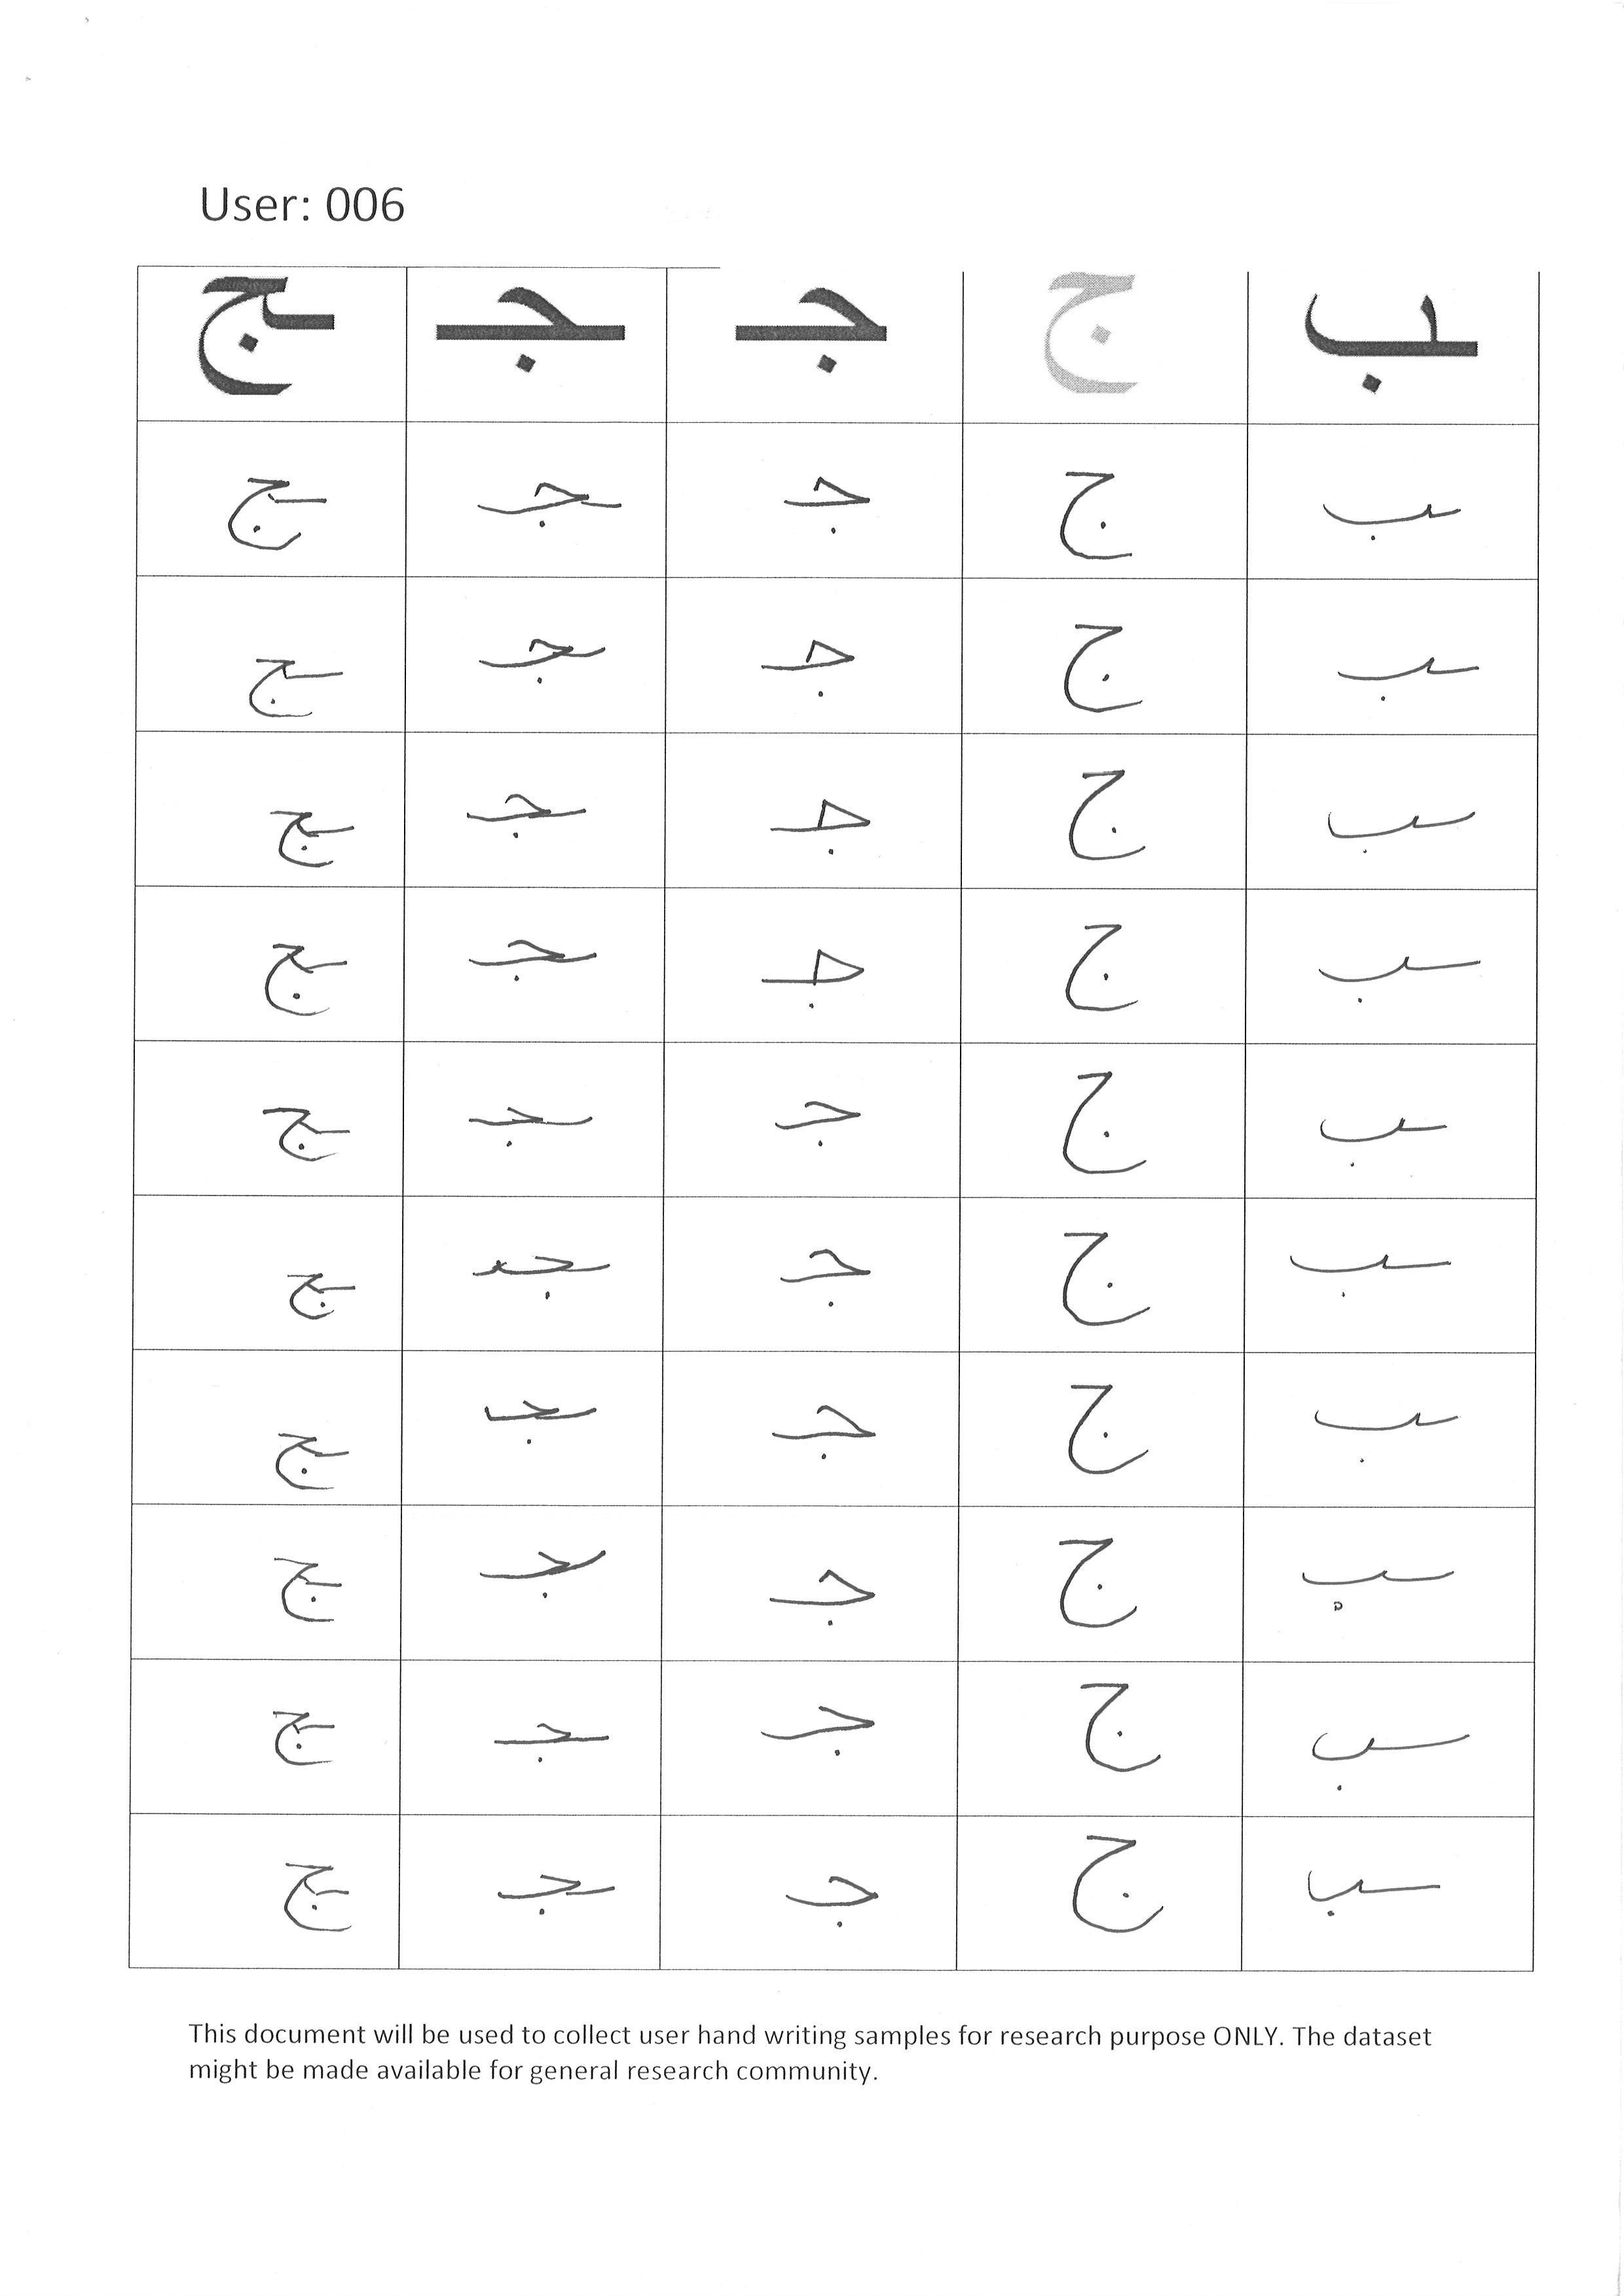 User: 006
ـب ج جـ ـجـ ـج
ـب ج جـ ـجـ ـج
ـب ج جـ ـجـ ـج
ـب ج جـ ـجـ ـج
ـب ج جـ ـجـ ـج
ـب ج جـ ـجـ ـج
ـب ج جـ ـجـ ـج
ـب ج جـ ـجـ ـج
ـب ج جـ ـجـ ـج
ـب ج جـ ـجـ ـج
ـب ج جـ ـجـ ـج
This document will be used to collect user hand writing samples for research purpose ONLY. The dataset
might be made available for general research community.